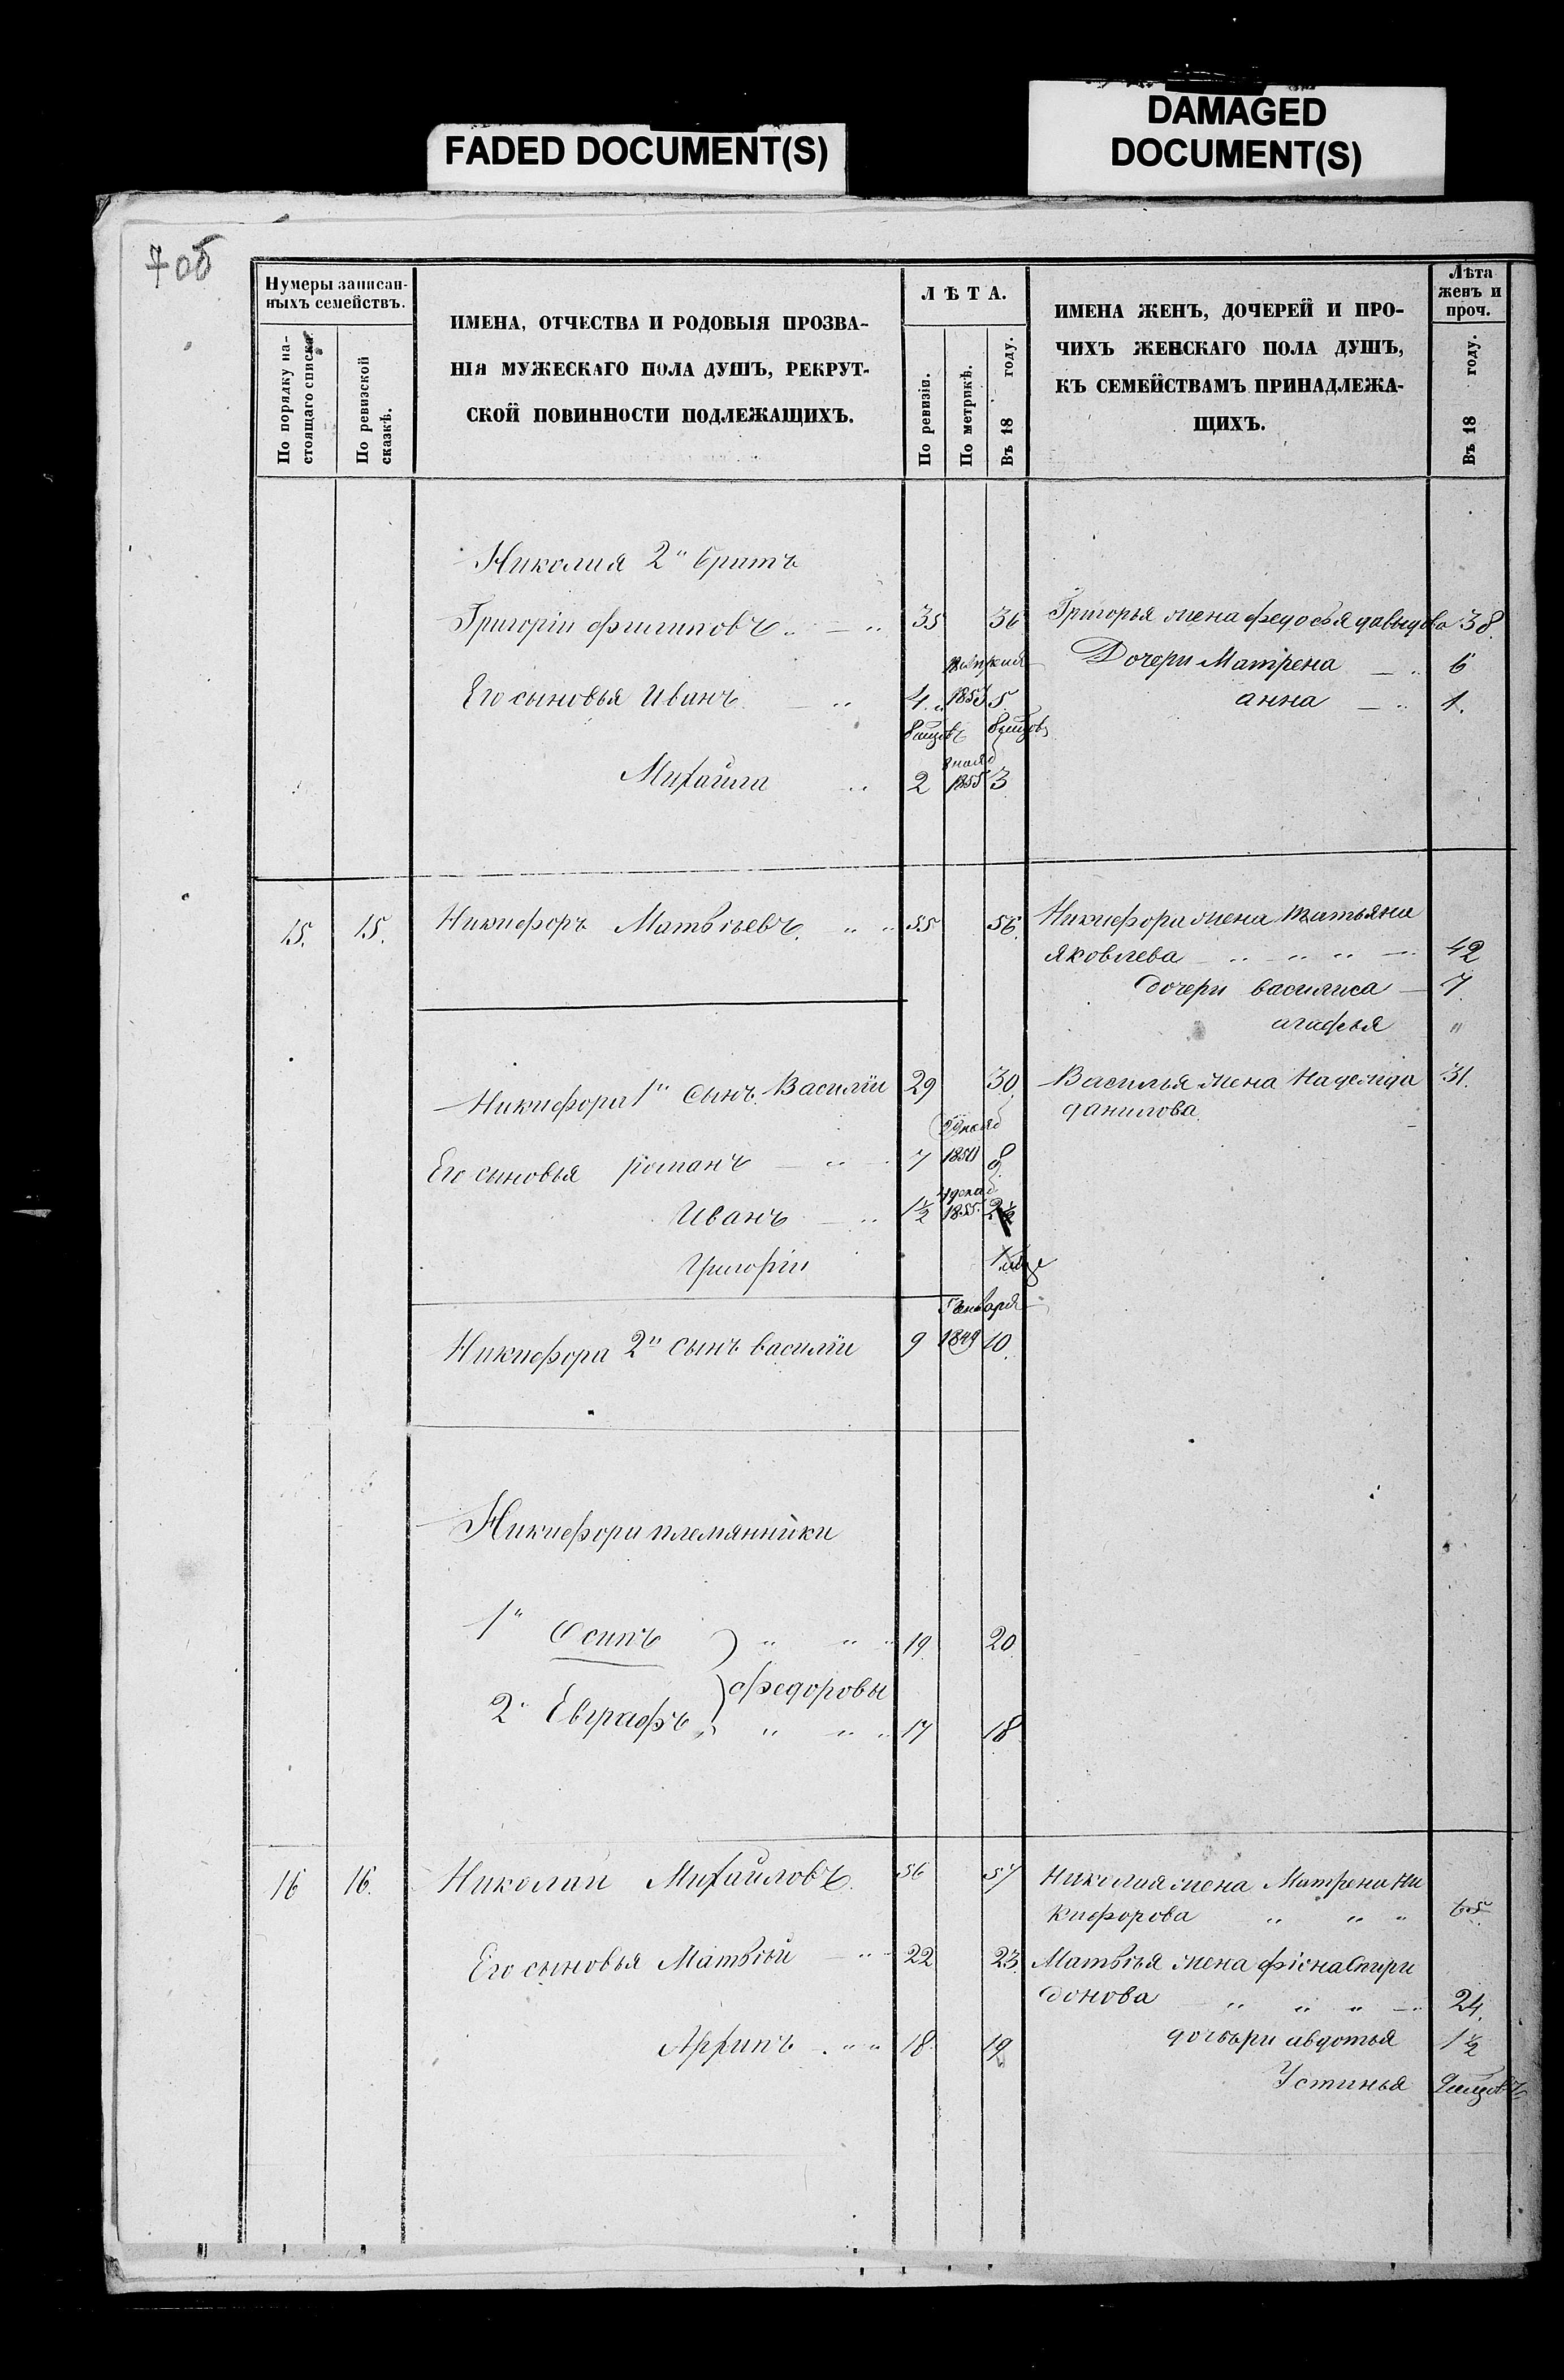 FADED DOCUMENT(S)
DAMAGED
DOCUMENT(S)
Нумеры записан-
ныхъ семействъ.
По порядку на-
стоящаго списка.
По ревизской
сказкѣ.
ИМЕНА, ОТЧЕСТВА И РОДОВЫЯ ПРОЗВА-
НІЯ МУЖЕСКАГО ПОЛА ДУШЪ, РЕКРУТ-
СКОЙ ПОВИННОСТИ ПОДЛЕЖАЩИХЪ.
ЛѢТА.
По ревизіи.
По метрикѣ.
Въ 18 году.
ИМЕНА ЖЕНЪ, ДОЧЕРЕЙ И ПРО-
ЧИХЪ ЖЕНСКАГО ПОЛА ДУШЪ,
КЪ СЕМЕЙСТВАМЪ ПРИНАДЛЕЖА-
ЩИХЪ.
Лѣта
женъ и
проч.
Въ 18 году.
Николая 2й братъ
Григорій Филиповъ 35 36 Григорья жена Федосья давыдова 38.
Дочери Матрена 6
Его сыновья Иванъ 4 1853 5 анна 1.
Михайла 2 1855 3
15. 15. Никифоръ Матвѣевъ 55 56. Никифора жена татьяна
яковлева 42
дочери василиса 7.
агафья "
Никифора 1й сынъ Василій 29 30 Василья жена Надежда 31.
данилова.
Его сыновья романъ 7 1850 8
Иванъ 1½ 1855 2½
Григорій
5 января
Никифора 2й сынъ василій 9 1849 10.
Никифора племянники
1й Осипъ 19. 20
федоровы
2й Евграфъ 17 18
16 16. Николай Михайловъ. 56 57 Николая жена Матрена Ни
кифорова 65
Его сыновья Матвѣй 22 23. Матвѣя жена фіона Спири
донова 24.
Архипъ 18 19 дочьри авдотья 1½
Устинья